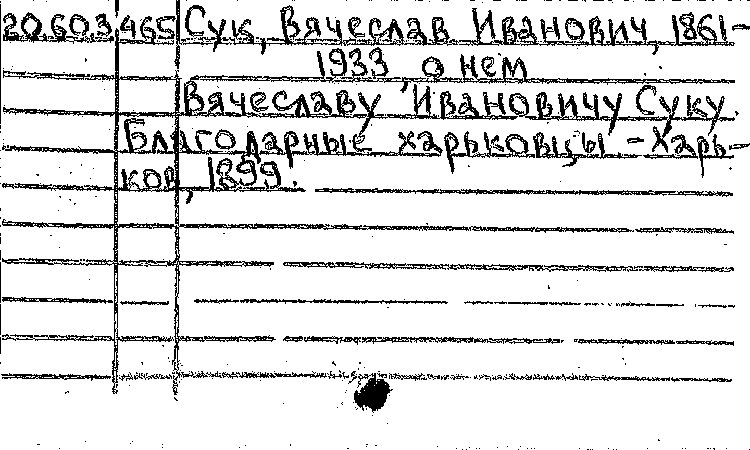 20.60.3.465 Сук, Вячеслав Иванович, 1861-
1933 о нем
Вячеславу Ивановичу Суку.
Благодарные харьковцы. - Харь-
ков, 1899.